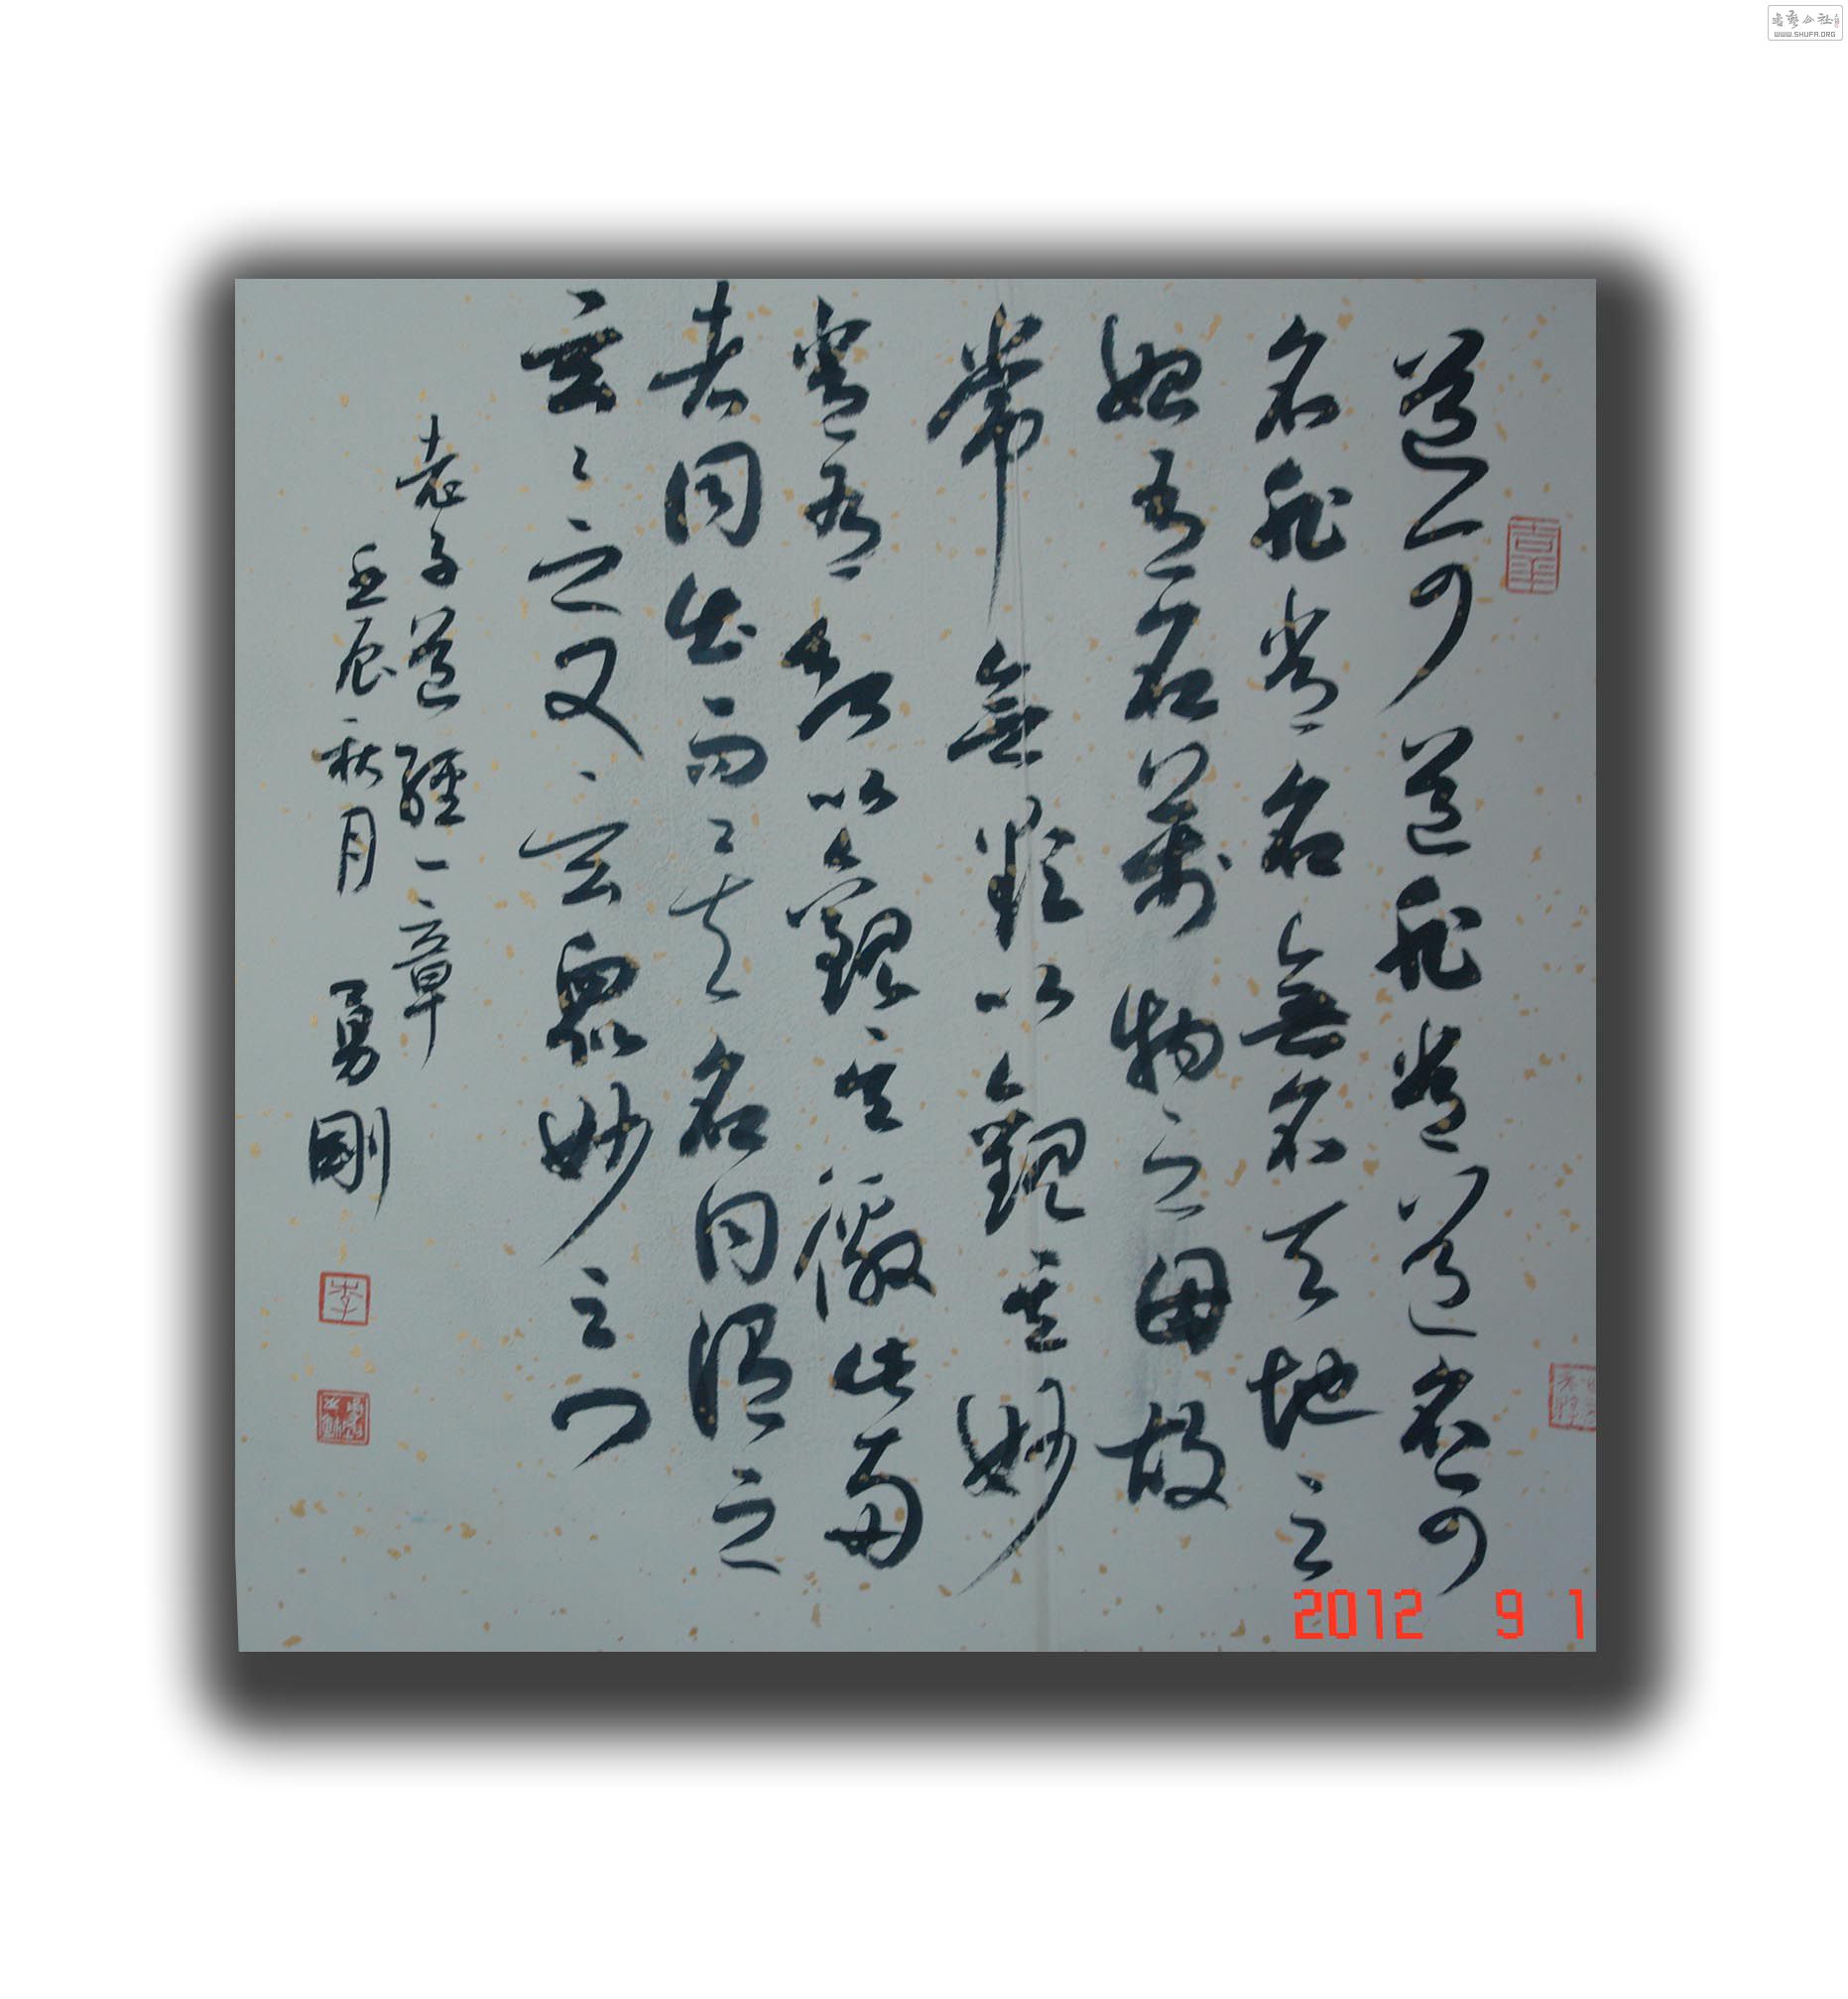 道可道非常道名可
名非常名無名天地之
始有名萬物之母故
常無欲以觀其妙
常有欲以觀其徼此兩
者同出而異名同謂之
玄玄之又玄眾妙之門
老子道經一章
壬辰秋月 勇剛
李
2012 9 1
WWW.SHUFA.ORG